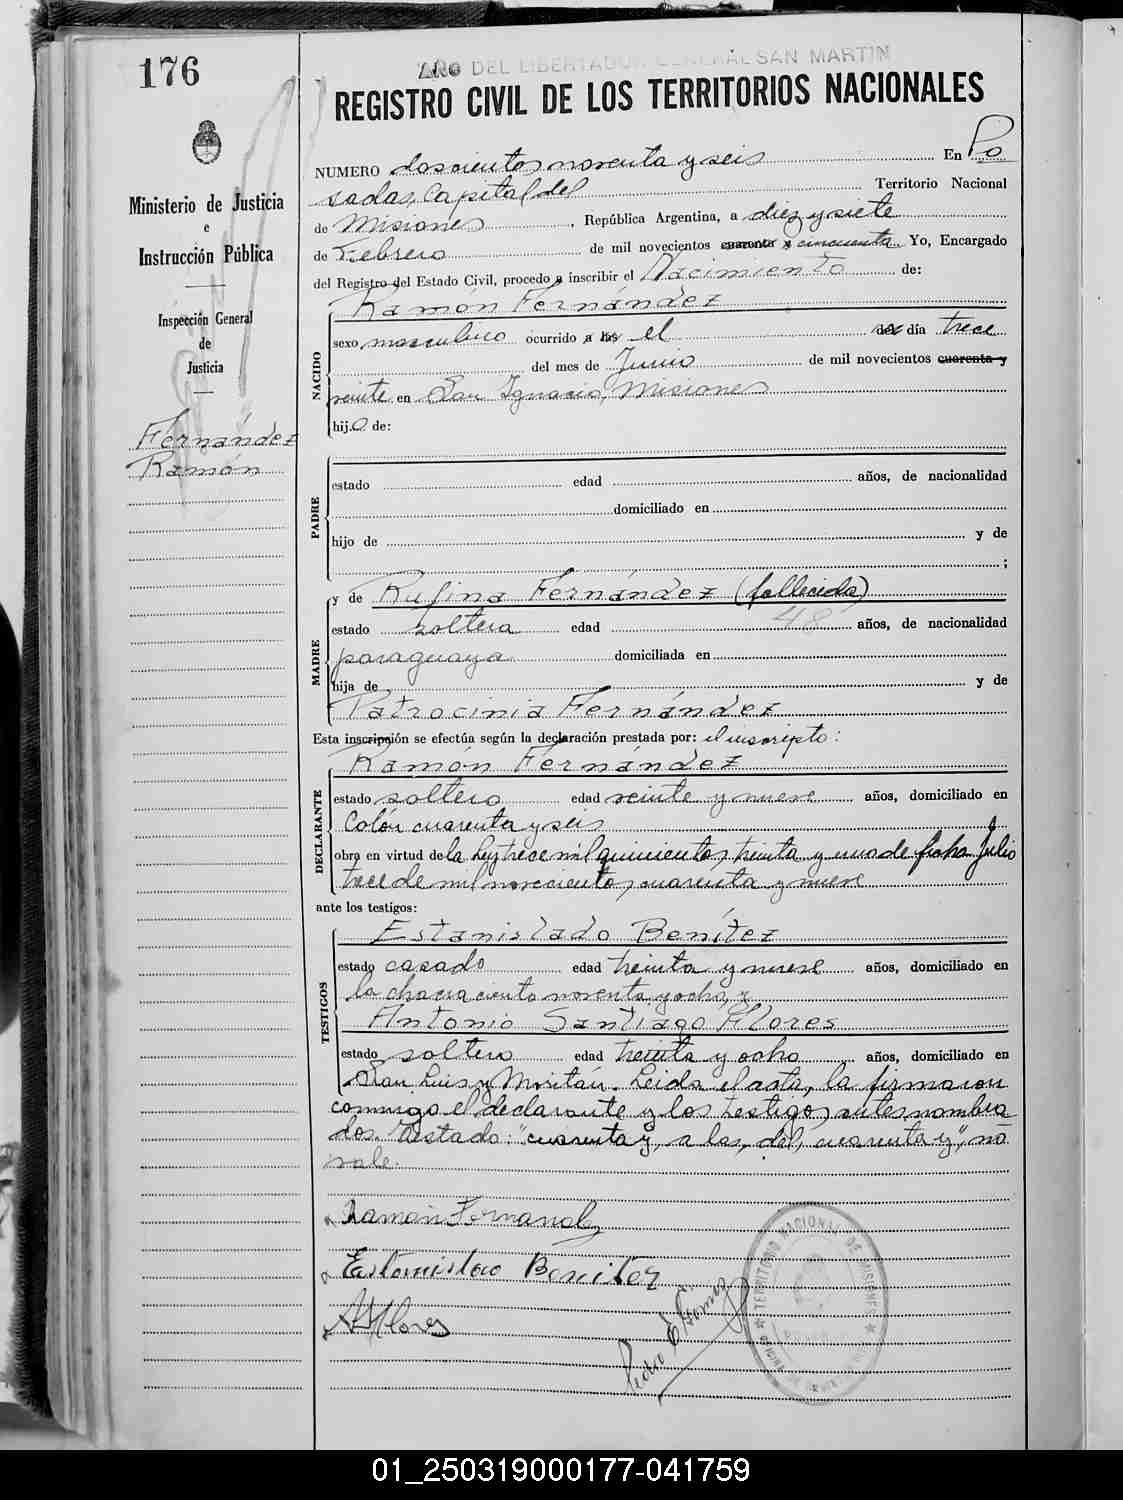 176
AÑO DEL LIBERTADOR GENERAL SAN MARTIN
REGISTRO CIVIL DE LOS TERRITORIOS NACIONALES
Ministerio de Justicia
e
Instrucción Pública
Inspección General
de
Justicia
Fernández
Ramón
NUMERO doscientos noventa y seis En Po
sadas, Capital del Territorio Nacional
de Misiones, República Argentina, a diez y siete
de Febrero de mil novecientos cuarenta y cincuenta Yo, Encargado
del Registro del Estado Civil, procedo a inscribir el Nacimiento de:
NACIDO
Ramón Fernández
sexo masculino ocurrido a las el del día trece
del mes de Junio de mil novecientos cuarenta y
veinte en San Ignacio, Misiones
hijo de:
PADRE
estado edad años, de nacionalidad
domiciliado en
hijo de y de
;
MADRE
y de Rufina Fernández (fallecida)
estado soltera edad 48 años, de nacionalidad
paraguaya domiciliada en
hija de y de
Patrocinia Fernández
Esta inscripción se efectúa según la declaración prestada por: el inscripto:
DECLARANTE
Ramón Fernández
estado soltero edad veinte y nueve años, domiciliado en
Colón cuarenta y seis
obra en virtud de la Ley trece mil quinientos treinta y uno de fecha Julio
trece de mil novecientos cuarenta y nueve
ante los testigos:
TESTIGOS
Estanislado Benítez
estado casado edad treinta y nueve años, domiciliado en
la chacra ciento noventa y ocho, y
Antonio Santiago Flores
estado soltero edad treinta y ocho años, domiciliado en
San Luis y Moritán. Leida el acta, la firmaron
conmigo el declarante y los testigos antes nombra
dos. Testado: "cuarenta y, a las, del, cuarenta y", no
vale.
Ramón Fernandez
Estanislao Benitez
A S Flores
Pedro E Gomez
TERRITORIO NACIONAL DE MISIONES
01_250319000177-041759